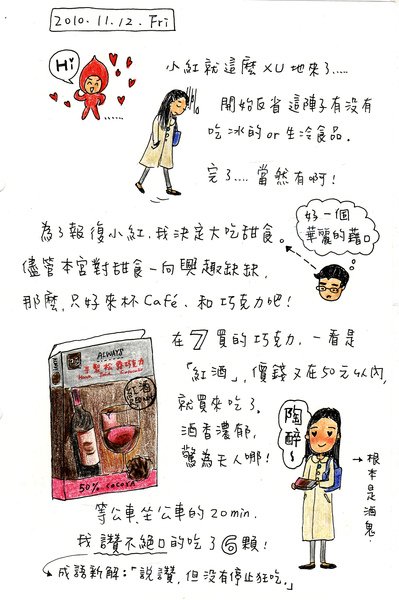 2010.11.12. Fri
Hi
小紅就這麼XU地來了.....
開始反省這陣子有沒有
吃冰的or生冷食品.
完了.... 當然有啊!
好一個
華麗的藉口
為了報復小紅,我決定大吃甜食。
儘管本宮對甜食一向興趣缺缺,
那麼,只好來杯Café、和巧克力吧!
在7買的巧克力,一看是
「紅酒」,價錢又在50元以內,
就買來吃了。
酒香濃郁,
驚為天人哪!
ALWAYS
紅酒
50% cocoa
陶醉~
→根本是酒鬼.
等公車、坐公車的20min.
我讚不絕口的吃了⑥顆!
成語新解:「說讚,但沒有停止狂吃。」